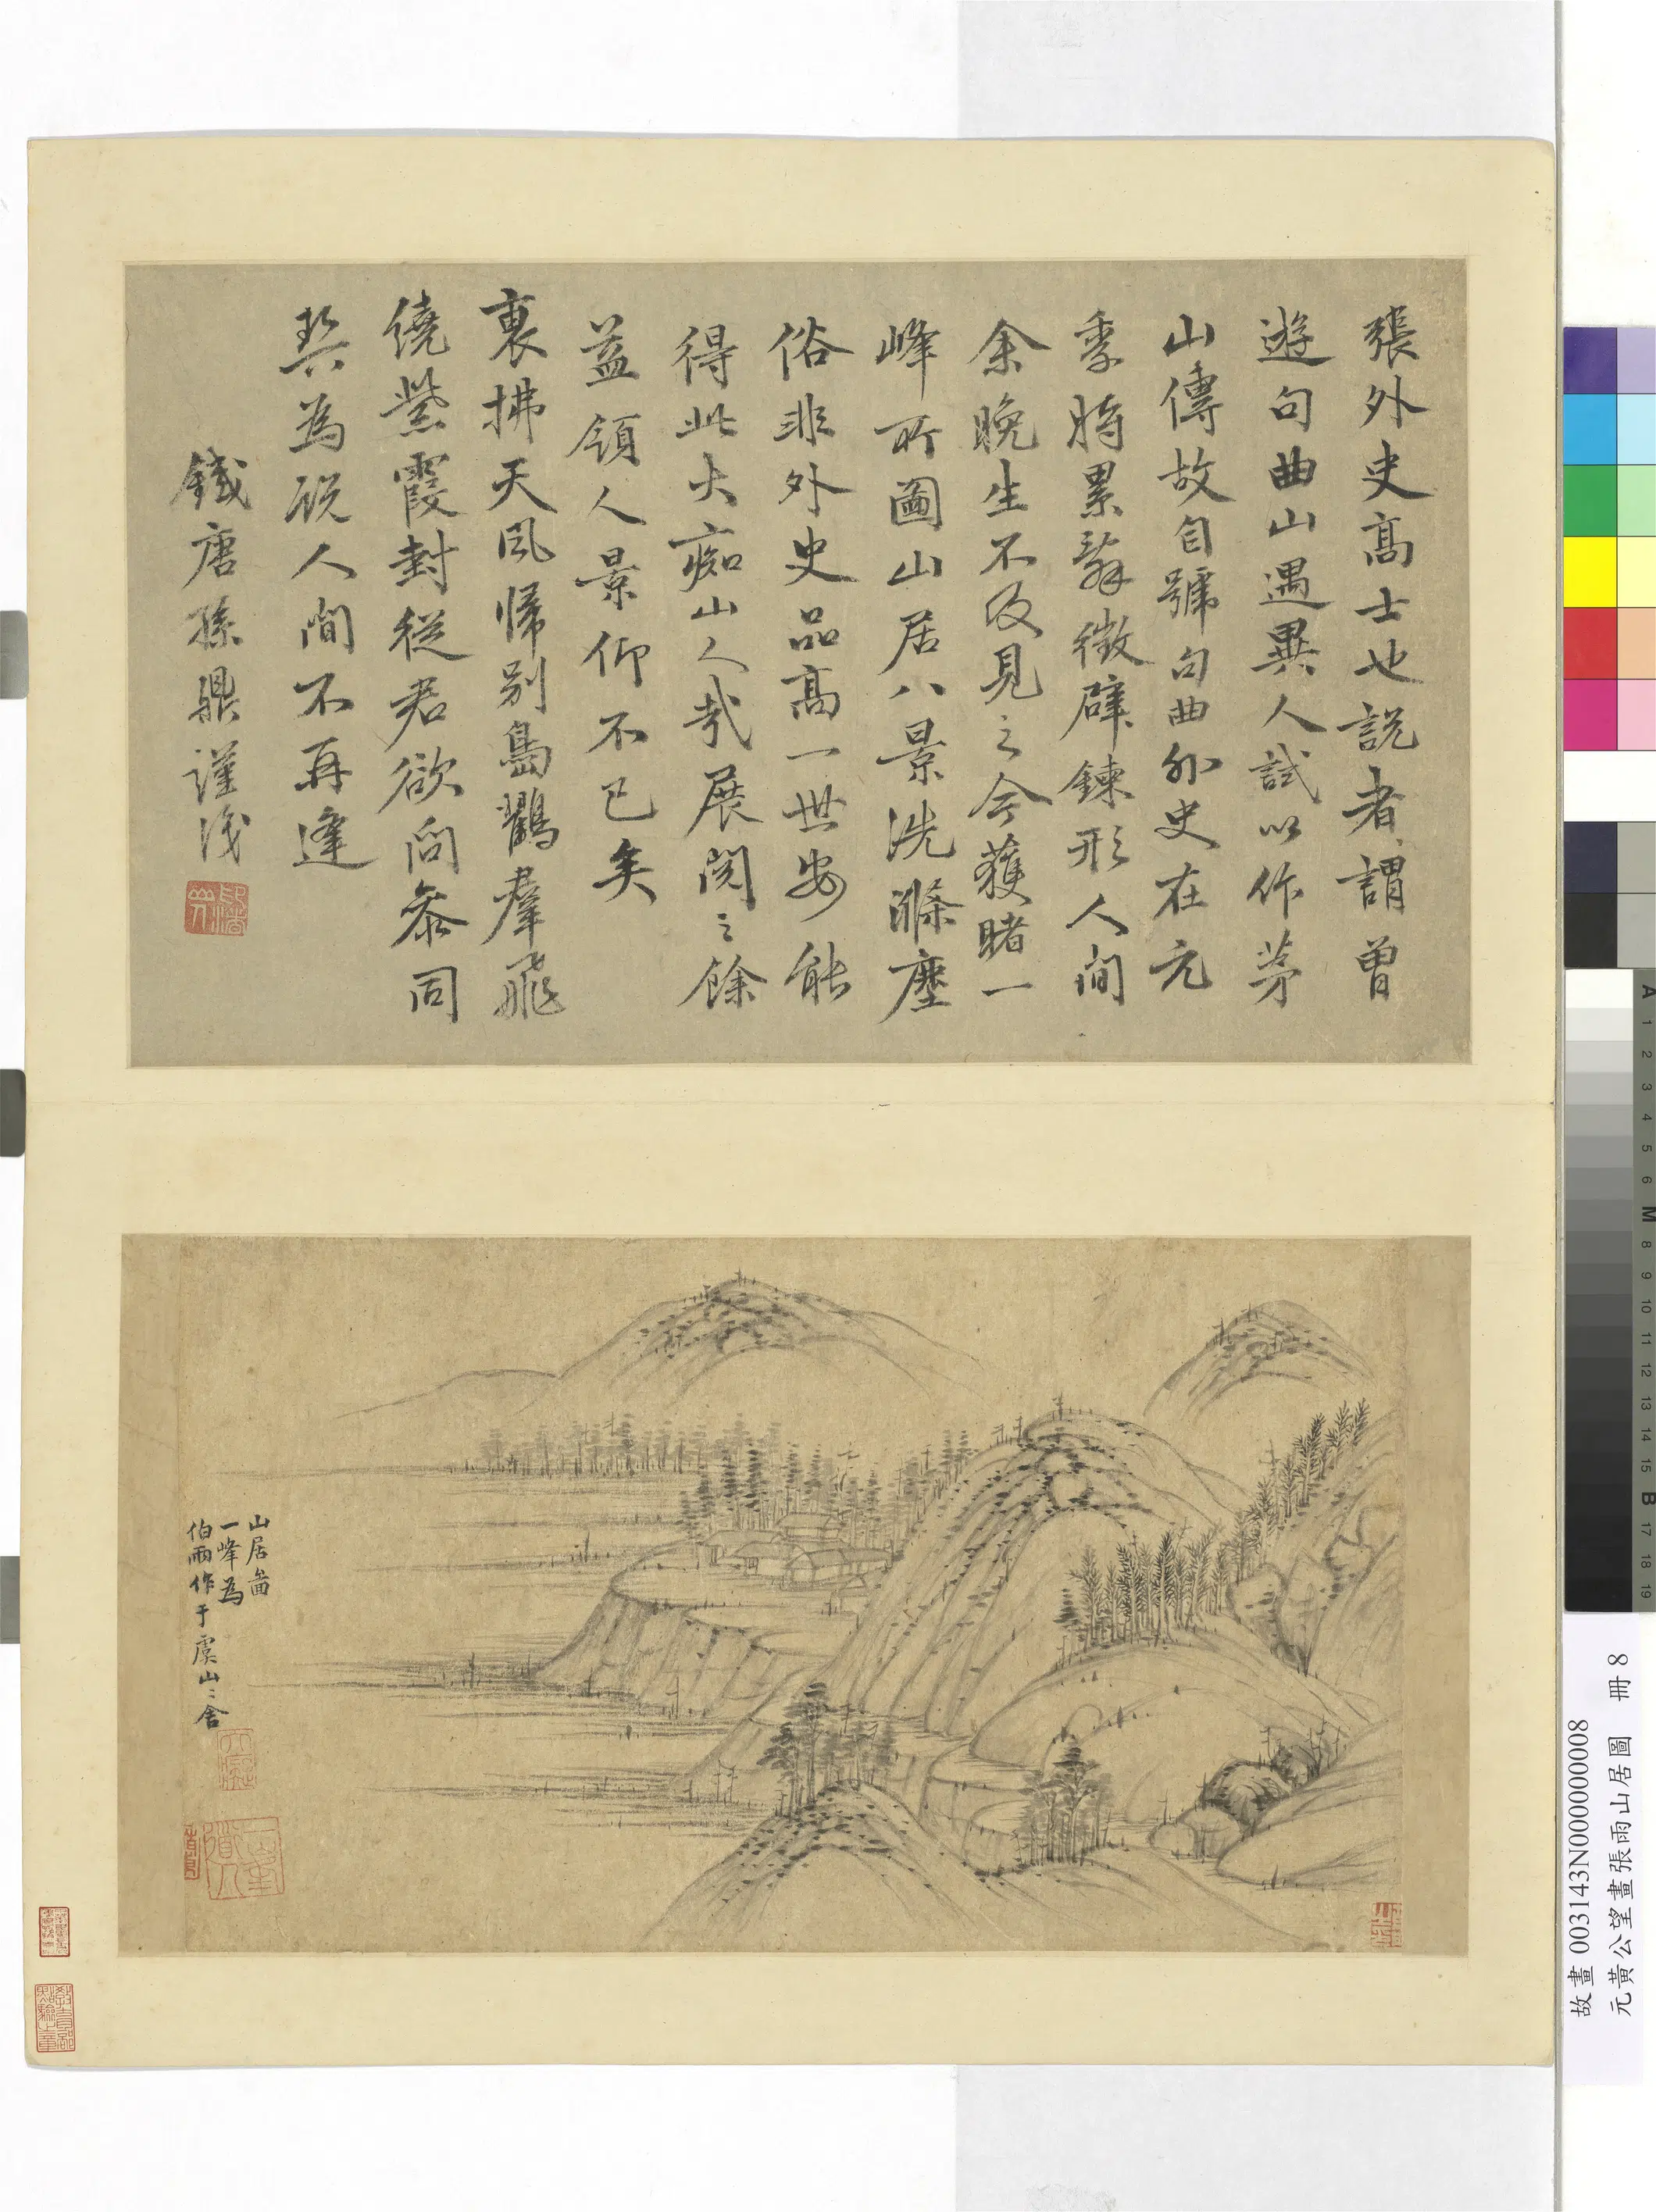 張外史高士也説者謂曽
遊句曲山遇異人試以作茅
山傳故自號句曲外史在元
季時累辭徵辟鍊形人間
余晚生不及見之今獲睹一
峰所圖山居八景洗滌塵
俗非外史品高一世安能
得此大痴山人哉展閲之餘
益領人景仰不已矣
裏拂天風歸別島鸛羣飛
繞紫霞封従君欲问叅同
契為説人间不再逢
錢唐孫鼎謹識
山居啚
一峰為
伯雨作于虞山〻舍
故畫 003143N000000008
元黃公望畫張雨山居圖 冊 8
A 1 2 3 4 5 6 M 8 9 10 11 12 13 14 15 B 17 18 19